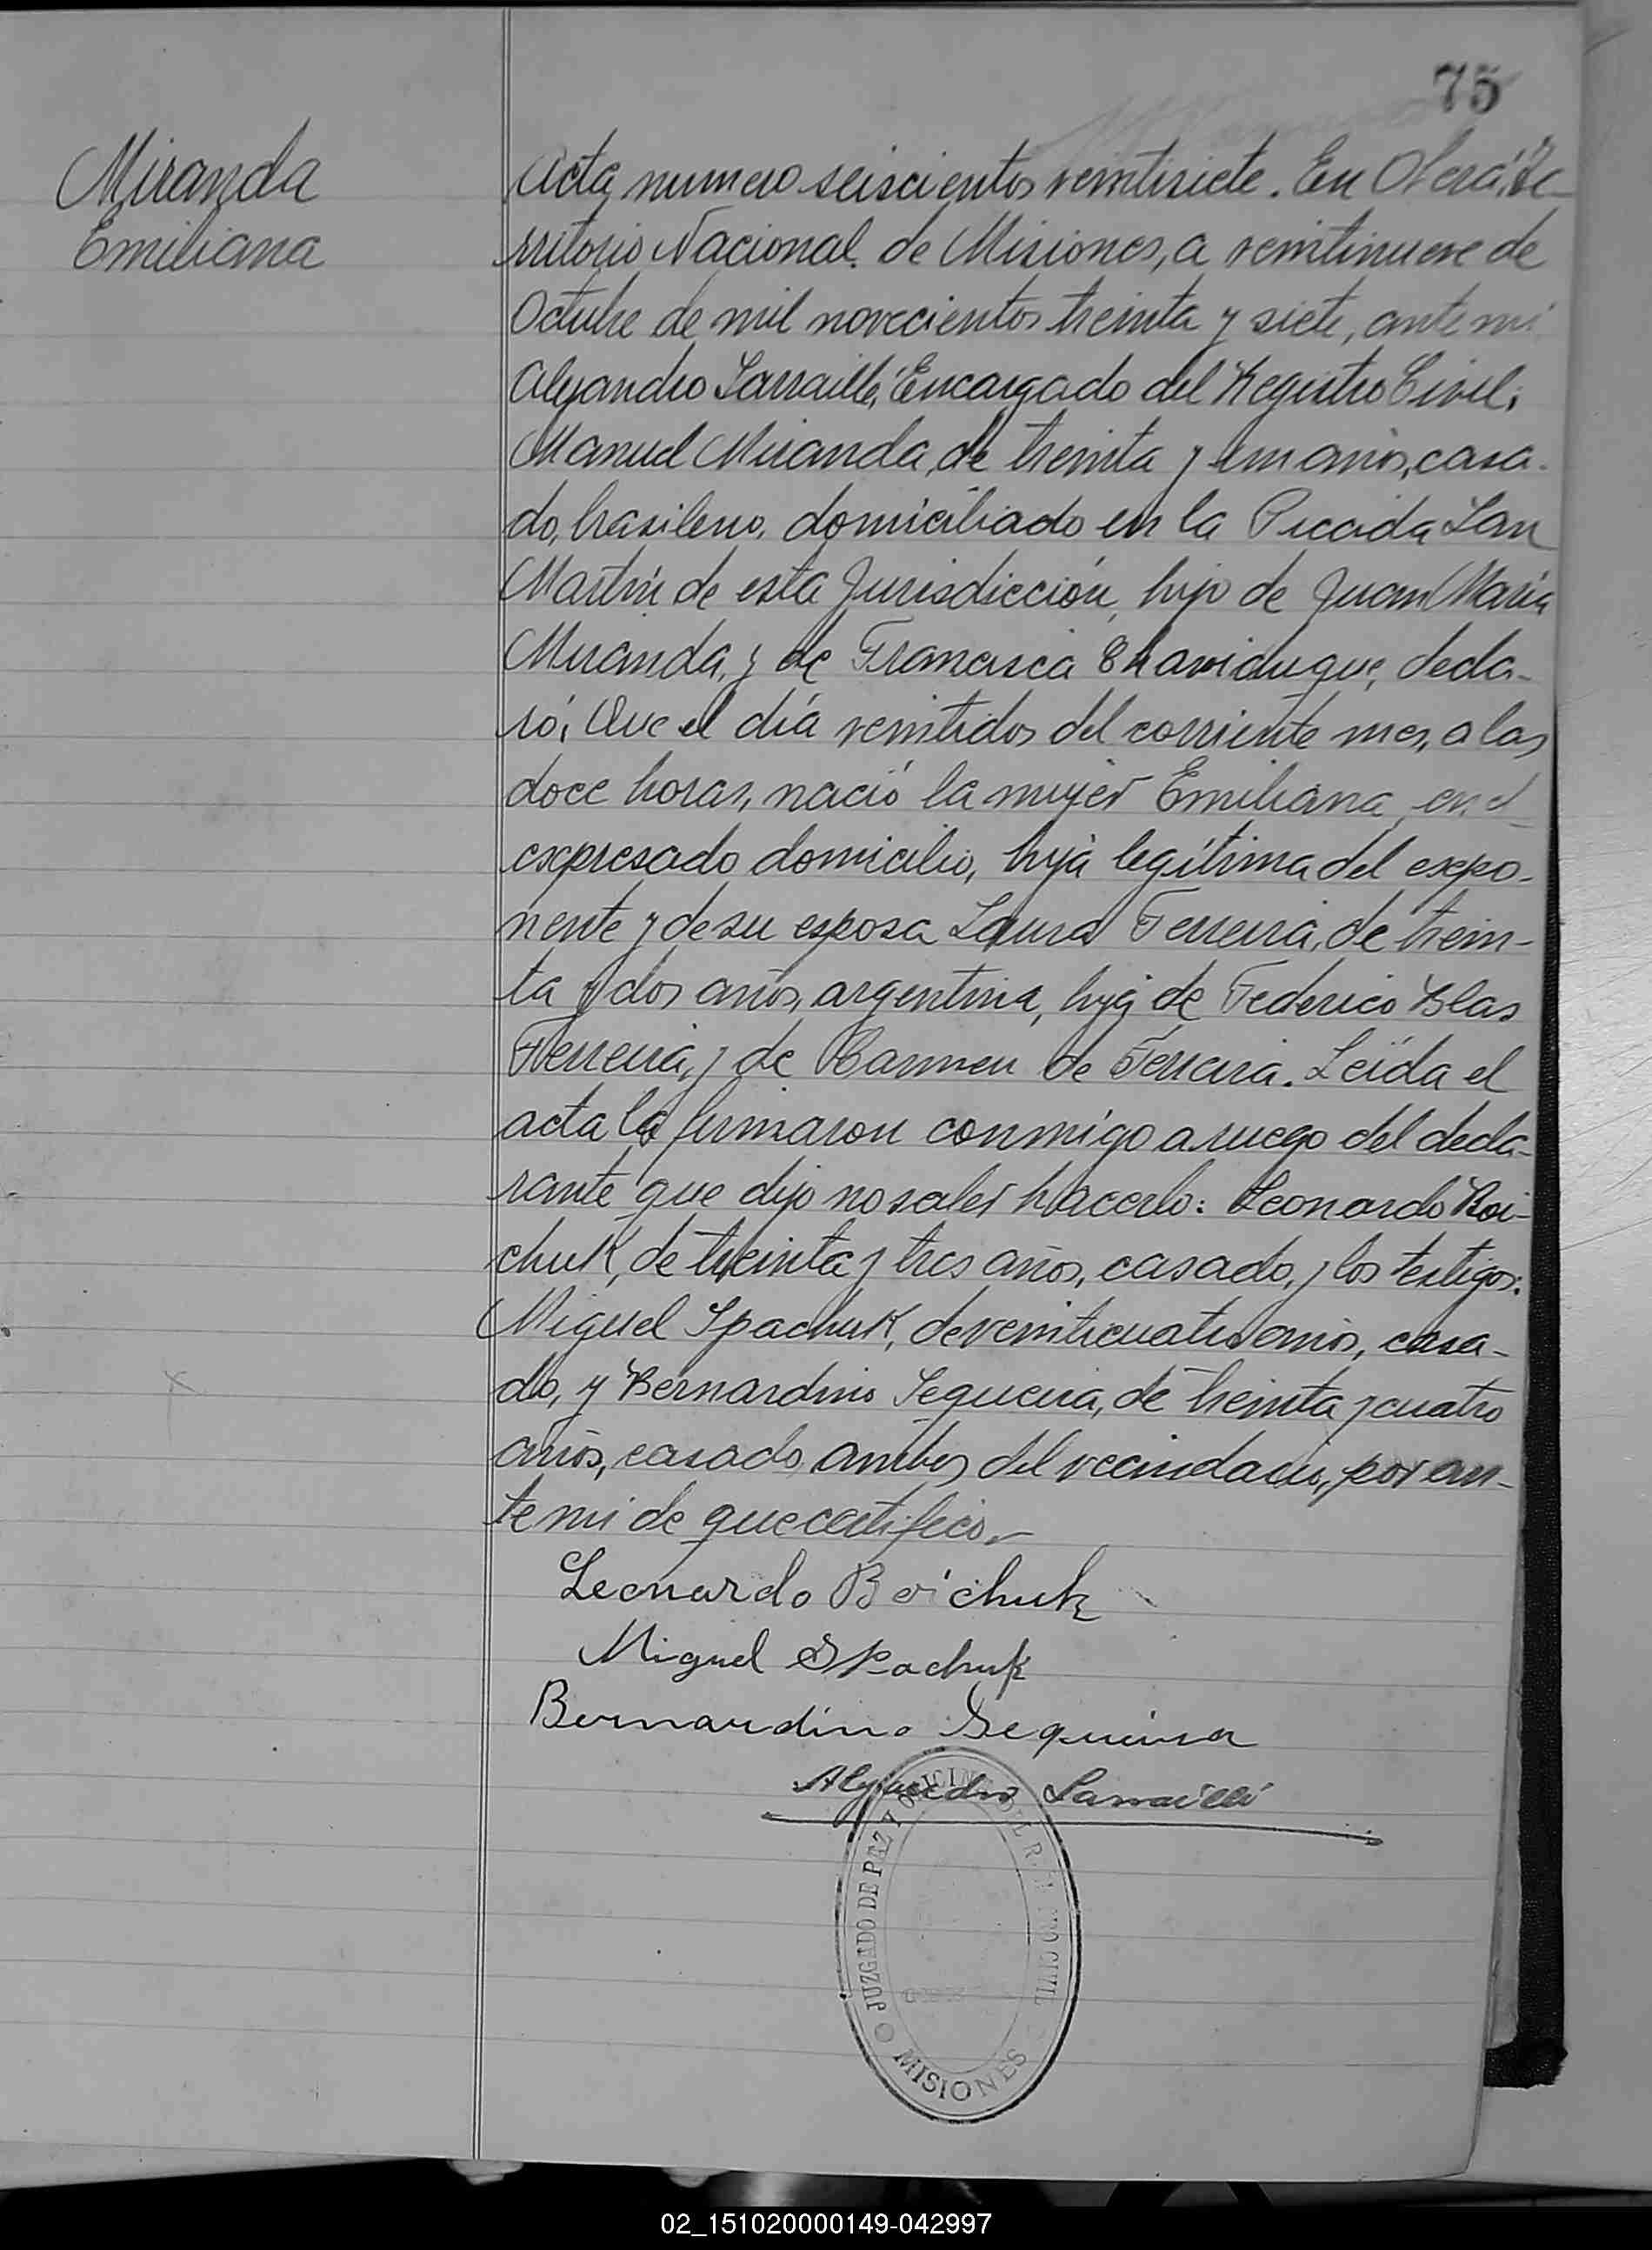 75
Miranda
Emiliana
Acta numero seiscientos veintisiete. En Oberá, Te-
rritorio Nacional de Misiones, a veintinueve de
Octubre de mil novecientos treinta y siete, ante mi
Alejandro Sarraillé, Encargado del Registro Civil,
Manuel Miranda, de treinta y un años, casa-
do, brasileno, domiciliado en la Picada San
Martín de esta Jurisdicción, hijo de Juan María
Miranda, y de Francisca decla-
ró: Que el día veintidos del corriente mes, a las
doce horas, nació la mujer Emiliana, en el
expresado domicilio, hija legítima del expo-
nente y de su esposa Laura Ferreira, de trein-
ta y dos años, argentina, hija de Federico Blas
Ferreira, y de Carmen de Ferreira. Leída el
acta la firmaron conmigo a ruego del decla-
rante que dijo no saber hacerlo: Leonardo Boi-
chuk, de treinta y tres años, casado, y los testigos:
Miguel Spachuk, de veinticuatro años, casa-
do, y Bernardino Sequeira, de treinta y cuatro
años, casado, ambos del vecindario, por an-
te mi de que certifico.-
Leonardo Boichuk
Miguel Spachuk
Bernardino Sequeira
Alejandro Sarraillé
JUZGADO DE PAZ Y OFICINA DEL REGISTRO CIVIL
MISIONES
02_151020000149-042997